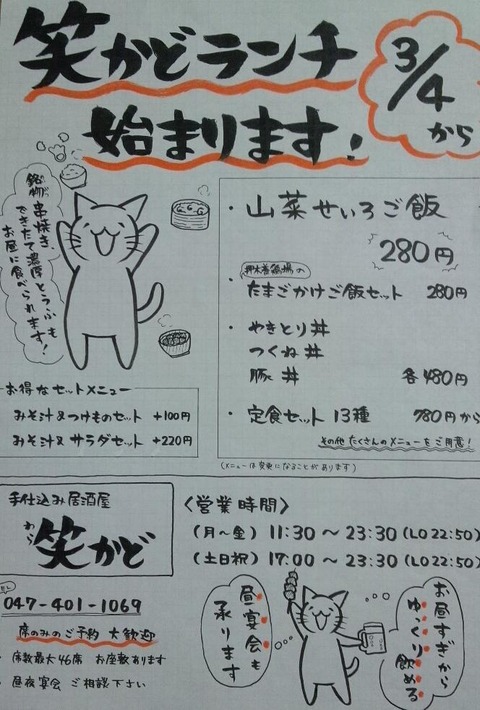 笑かどランチ
始まります!
3/4
から
銘物串焼き、
できたて濃厚とうふも
お昼に食べられます!
・山菜せいろご飯
280円
・たまごかけご飯セット 280円
・やきとり丼
つくね丼
豚丼 各480円
・定食セット 13種 780円から
その他たくさんのメニューをご用意!
(メニューは変更になることがあります)
お得なセットメニュー
みそ汁&つけものセット +100円
みそ汁&サラダセット +220円
手仕込み居酒屋
わら
笑かど
TEL
047-401-1069
席のみのご予約 大歓迎
・席数最大46席 お座敷あります
・昼夜宴会 ご相談下さい
〈営業時間〉
(月〜金) 11:30 〜 23:30 (LO 22:50)
(土日祝) 17:00 〜 23:30 (LO 22:50)
昼宴会も
承ります
お昼すぎから
ゆっくり飲める